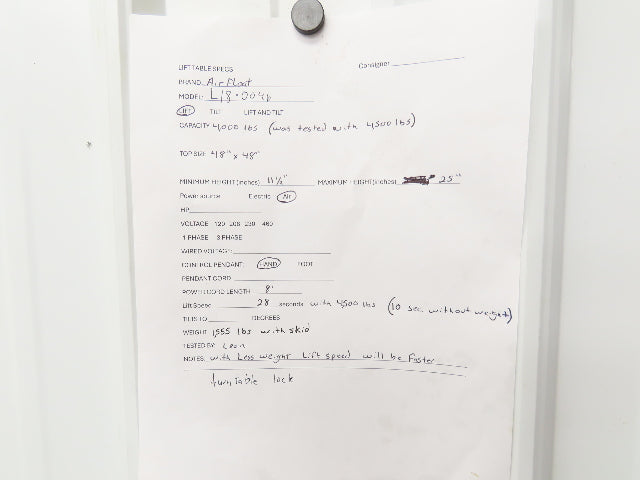 LIFT TABLE SPECS
Consigner
BRAND: AirFloat
MODEL:
LIFT TILT LIFT AND TILT
CAPACITY 4,000 lbs (was tested with 4500 lbs)
TOP SIZE 48" x 48"
MINIMUM HEIGHT (inches) 11 1/2" MAXIMUM HEIGHT (inches) 25"
Power source Electric Air
HP
VOLTAGE 120 208 230 460
1 PHASE 3 PHASE
WIRED VOLTAGE:
CONTROL PENDANT: HAND FOOT
PENDANT CORD
POWER CORD LENGTH 8'
Lift Speed 28 seconds with 4500 lbs (10 sec. without weight)
TILTS TO DEGREES
WEIGHT 1,555 lbs with skid
TESTED BY: Leon
NOTES: with Less weight Lift speed will be Faster
turntable lock